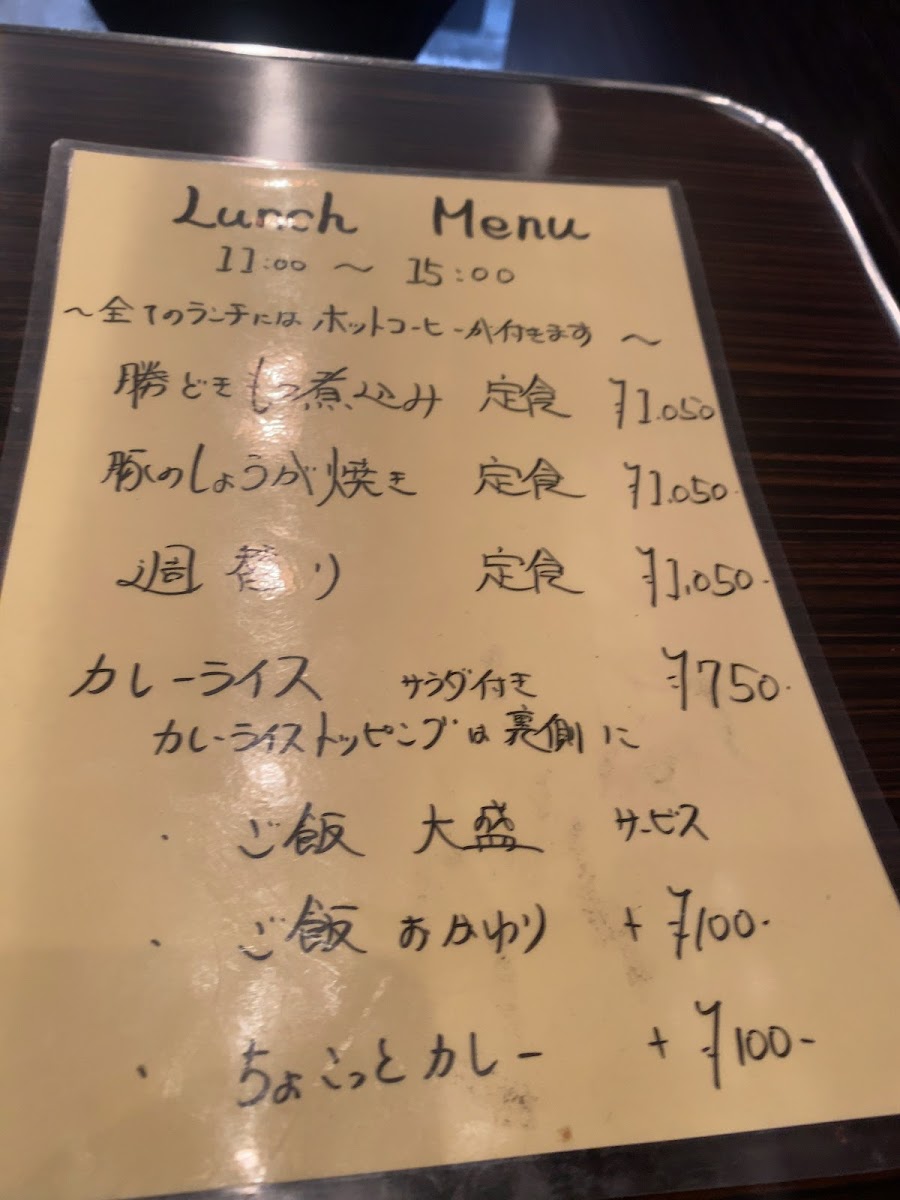 Lunch Menu
11:00 ～ 15:00
～全てのランチにはホットコーヒーが付きます～
勝どきもつ煮込み 定食 ¥1.050
豚のしょうが焼き 定食 ¥1.050-
週替り 定食 ¥1.050-
カレーライス サラダ付き ¥750-
カレーライストッピングは裏側に
・ご飯 大盛 サービス
・ご飯 おかわり + ¥100-
・ちょこっとカレー + ¥100-